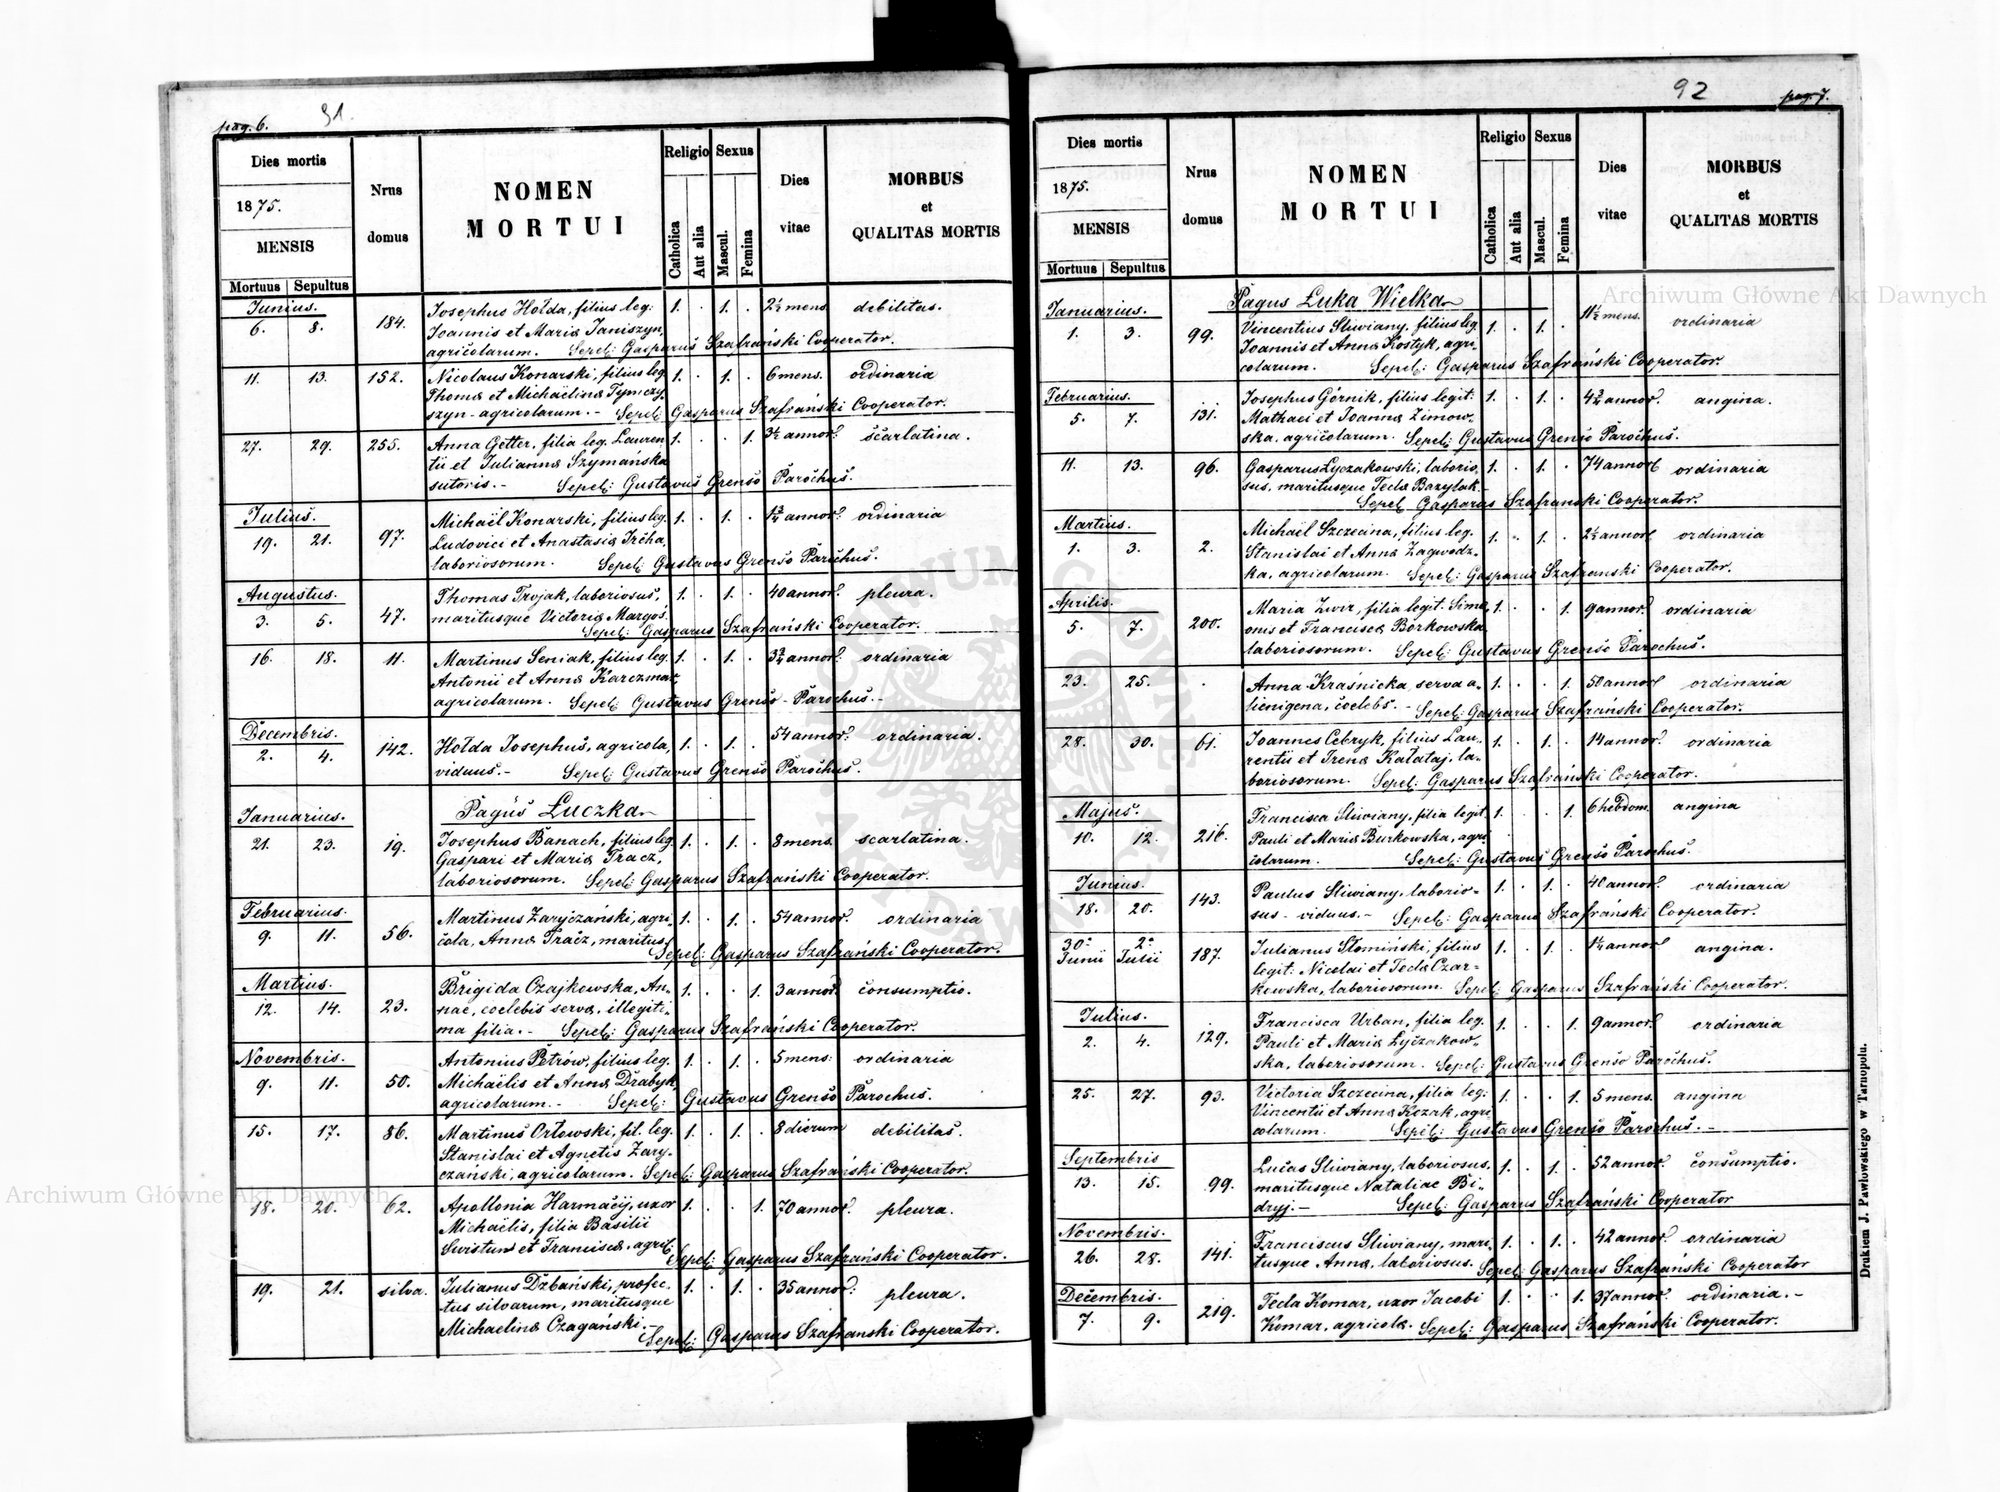 pag. 6.
91.
Dies mortis
1875.
MENSIS
Mortuus
Sepultus
Nrus
domus
NOMEN
MORTUI
Religio
Catholica
Aut alia
Sexus
Mascul.
Femina
Dies
vitae
MORBUS
et
QUALITAS MORTIS
Junius.
6. 8. 184. Josephus Hołda, filius leg: 1. . 1. . 2½ mens. debilitas.
Joannis et Maria Janiszyn,
agricolarum. Sepel: Gasparus Szafrański Cooperator.
11. 13. 152. Nicolaus Konarski, filius leg. 1. . 1. . 6 mens. ordinaria
Thoma et Michaëlina Tymczy-
szyn - agricolarum. - Sepel: Gasparus Szafrański Cooperator.
27. 29. 255. Anna Getter, filia leg. Lauren 1. . . 1. 3½ annor: scarlatina.
tii et Julianna Szymańska
sutoris. - Sepel: Gustavus Grenso Parochus.
Julius.
19. 21. 97. Michaël Konarski, filius leg. 1. . 1. . annor: ordinaria
Ludovici et Anastasia
laboriosorum. Sepel: Gustavus Grenso Parochus.
Augustus.
3. 5. 47. Thomas Trojak, laboriosus, 1. . 1. . 40 annor. pleura.
maritusque Victoria Margos.
Sepel: Gasparus Szafrański Cooperator.
16. 18. 11. Martinus Seniak, filius leg. 1. . 1. . annor: ordinaria
Antonii et Anna Karczmar,
agricolarum. Sepel: Gustavus Grenso - Parochus. -
Decembris.
2. 4. 142. Hołda Josephus, agricola, 1. . 1. . 54 annor: ordinaria.
viduus. - Sepel: Gustavus Grenso Parochus.
Pagus Łuczka
Januarius.
21. 23. 19. Josephus Banach, filius leg. 1. . 1. . 8 mens. scarlatina.
Gaspari et Maria Tracz,
laboriosorum. Sepel: Gasparus Szafrański Cooperator.
Februarius.
9. 11. 56. Martinus Zaryczański, agri- 1. . 1. . 54 annor. ordinaria
cola, Anna Tracz, maritus.
Sepel: Gasparus Szafrański Cooperator.
Martius.
12. 14. 23. Brigida Czajkowska, An- 1. . . 1. 3 annor. consumptio.
nae, coelebis serva, illegiti-
ma filia. - Sepel: Gasparus Szafrański Cooperator.
Novembris.
9. 11. 50. Antonius Petrów, filius leg. 1. . 1. . 5 mens: ordinaria
Michaëlis et Anna Drabyk,
agricolarum. - Sepel: Gustavus Grenso Parochus.
15. 17. 86. Martinus Orłowski, fil. leg. 1. . 1. . 8 dierum debilitas.
Stanislai et Agnetis Zary-
czański, agricolarum. Sepel: Gasparus Szafrański Cooperator.
18. 20. 62. Apollonia Harmacij, uxor 1. . . 1. 70 annor. pleura.
Michaëlis, filia Basilii
Swistun et Francisca, agric.
Sepel: Gasparus Szafrański Cooperator.
19. 21. silva. Julianus Dżbański, profec- 1. . 1. . 35 annor: pleura.
tus silvarum, maritusque
Michaelina Czagański. -
Sepel: Gasparus Szafranski Cooperator.
92
pag. 7.
Dies mortis
1875.
MENSIS
Mortuus
Sepultus
Nrus
domus
NOMEN
MORTUI
Religio
Catholica
Aut alia
Sexus
Mascul.
Femina
Dies
vitae
MORBUS
et
QUALITAS MORTIS
Pagus Łuka Wielka
Januarius.
1. 3. 99. Vincentius Sliwiany, filius leg. 1. . 1. . 11½ mens. ordinaria
Joannis et Anna Kostyk, agri-
colarum. Sepel: Gasparus Szafrański Cooperator.
Februarius.
5. 7. 131. Josephus Górnik, filius legit: 1. . 1. . annor. angina.
Mathaei et Joanna Zimow-
ska, agricolarum. Sepel: Gustavus Grenso Parochus.
11. 13. 96. Gasparus Lyczakowski, laborio- 1. . 1. . 74 annor. ordinaria
sus, maritusque Tecla Bazylak. -
Sepel Gasparus Szafranski Cooperator.
Martius.
1. 3. 2. Michaël Szczecina, filius leg. 1. . 1. . 2½ annor. ordinaria
Stanislai et Anna Zagwodz-
ka, agricolarum. Sepel: Gasparus Szafranski Cooperator.
Aprilis.
5. 7. 200. Maria Zwir, filia legit. Sime- 1. . . 1. 9 annor. ordinaria
onis et Francisca Borkowska,
laboriosorum. Sepel: Gustavus Grenso Parochus.
23. 25. . Anna Kraśnicka, serva a- 1. . . 1. 50 annor. ordinaria
lienigena, coelebs. - Sepel: Gasparus Szafrański Cooperator.
28. 30. 61. Joannes Cebryk, filius Lau- 1. . 1. . 14 annor. ordinaria
rentii et Irena Kałataj, la-
boriosorum. Sepel: Gasparus Szafrański Cooperator.
Majus.
10. 12. 216. Francisca Sliwiany, filia legit 1. . . 1. 6 hebdom. angina
Pauli et Maria Burkowska, agri-
colarum. Sepel: Gustavus Grenso Parochus.
Junius.
18. 20. 143. Paulus Sliwiany, laborio- 1. . 1. . 40 annor. ordinaria
sus - viduus. - Sepel: Gasparus Szafrański Cooperator.
30. 2.
Junii Julii 187. Julianus Słomiński, filius 1. . 1. . 1½ annor. angina.
legit: Nicolai et Tecla Czar-
kowska, laboriosorum. Sepel: Gasparus Szafrański Cooperator.
Julius.
2. 4. 129. Francisca Urban, filia leg. 1. . . 1. 9 annor. ordinaria
Pauli et Maria Lyczakow-
ska, laboriosorum. Sepel: Gustavus Grenso Parochus.
25. 27. 93. Victoria Szczecina, filia leg: 1. . . 1. 5 mens. angina
Vincentii et Anna Kozak, agri
colarum. Sepel: Gustavus Grenso Parochus. -
Septembris
13. 15. 99. Lucas Sliwiany, laboriosus, 1. . 1. . 52 annor. consumptio.
maritusque Nataliae Bi-
dryj. - Sepel: Gasparus Szafrański Cooperator
Novembris.
26. 28. 141. Franciscus Sliwiany, mari- 1. . 1. . 42 annor. ordinaria
tusque Anna, laboriosus. Sepel: Gasparus Szafrański Cooperator
Decembris.
7. 9. 219. Tecla Komar, uxor Jacobi 1. . . 1. 37 annor. ordinaria. -
Komar, agricola. Sepel: Gasparus Szafrański Cooperator.
Drukiem J. Pawłowskiego w Tarnopolu.
Archiwum Główne Akt Dawnych
Archiwum Główne Akt Dawnych
ARCHIWUM GŁÓWNE AKT DAWNYCH